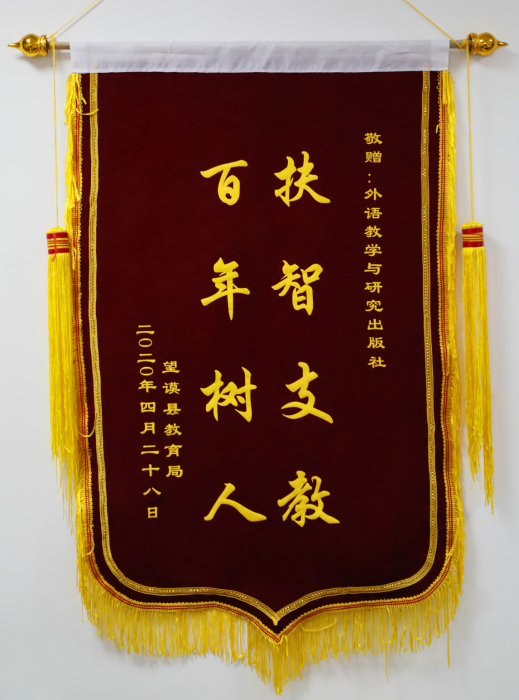 敬赠：外语教学与研究出版社
扶智支教
百年树人
望谟县教育局
二〇二〇年四月二十八日